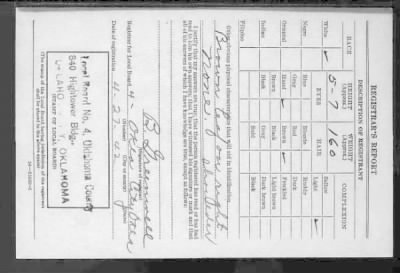 REGISTRAR'S REPORT
DESCRIPTION OF REGISTRANT
RACE
HEIGHT
(Approx.)
WEIGHT
(Approx.)
COMPLEXION
5-7
160
EYES
HAIR
White ✓
Negro
Oriental
Indian
Filipino
Blue
Gray
Hazel ✓
Brown
Black
Blonde
Red
Brown ✓
Black
Gray
Bald
Sallow
Light ✓
Ruddy
Dark
Freckled
Light brown
Dark brown
Black
Other obvious physical characteristics that will aid in identification
Brown
on right
shoulder
none
I certify that my answers are true; that the person registered has read or has had
read to him his own answers; that I have witnessed his signature or mark and that
all of his answers of which I have knowledge are true, except as follows:
B Greenwell
Registrar for Local Board 4
Okla City
Okla
(Number)
(City or county)
(State)
Date of registration 4-27-42
Local Board No. 4, Oklahoma County
840 Hightower Bldg.
OKLAHOMA
(STAMP OF LOCAL BOARD)
(The stamp of the Local Board having jurisdiction of the registrant
shall be placed in the above space)